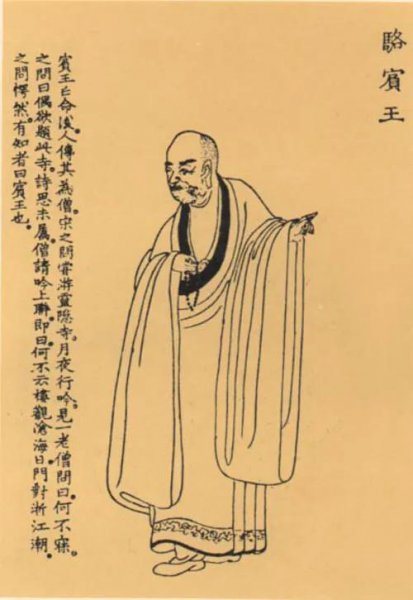 駱賓王
賓王亡命後。人傳其為僧。宋之問嘗游靈隐寺。月夜行吟。見一老僧問曰。何不寐。
之問曰。偶欲題此寺。詩思未属。僧請吟上聯。即曰。何不云樓觀滄海日。門對浙江潮。
之問愕然。有知者曰賓王也。